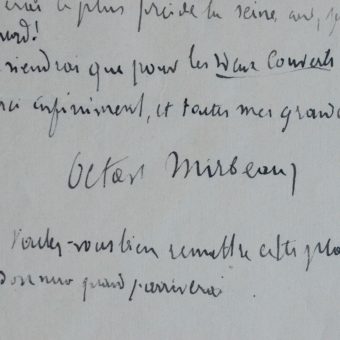 plus près de la scène, car, je
sourd!
viendrai que pour les Deux Couverts
infiniment, et toutes mes grandes
Octave Mirbeau
Voulez-vous bien remettre cette pla
quand j'arriverai